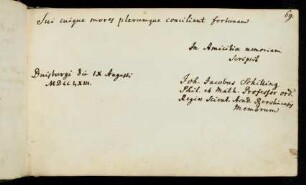 69.
Sui cuique mores plerumque conciliant fortunam
In Amicitiæ memoriam
Scripsit
Duisburgi die IX Augusti
MDCCLXIII.
Joh. Jacobus Schilling
Phil. et Math. Professor ord.
Regiæ Scient. Acad. Berolinensis
Membrum